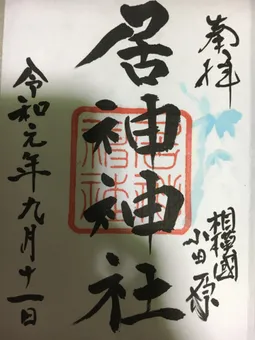 奉拝
相模國
小田原
居神神社
令和元年九月十一日